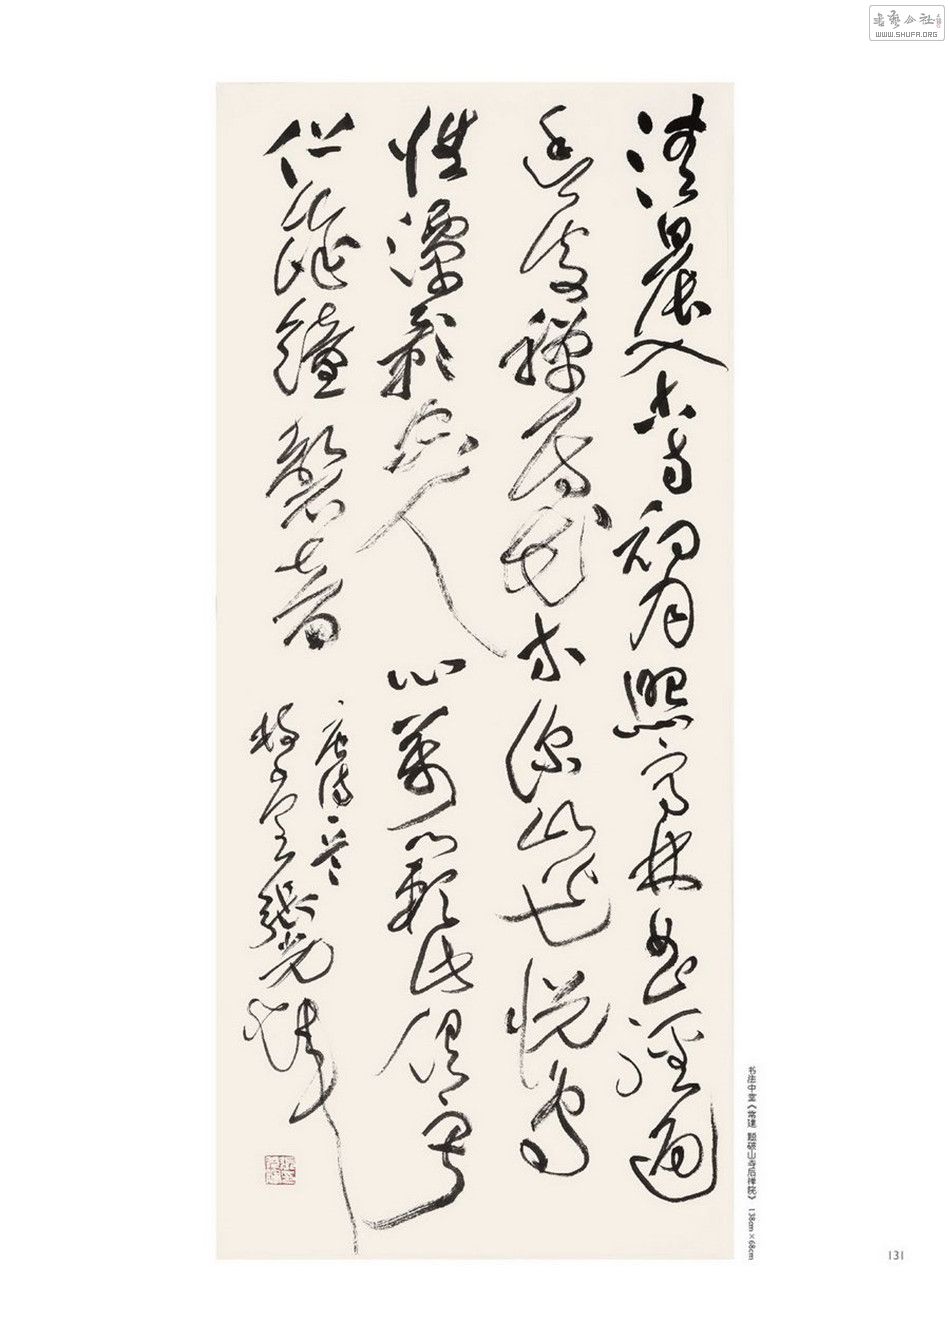 书艺公社
WWW.SHUFA.ORG
清晨入古寺初日照高林曲徑通
幽處禪房花木深山光悦鳥
性潭影空人心萬籟此俱寂
但餘鐘磬音
唐詩一首
張光
书法中堂《常建 题破山寺后禅院》 138cm×68cm
131